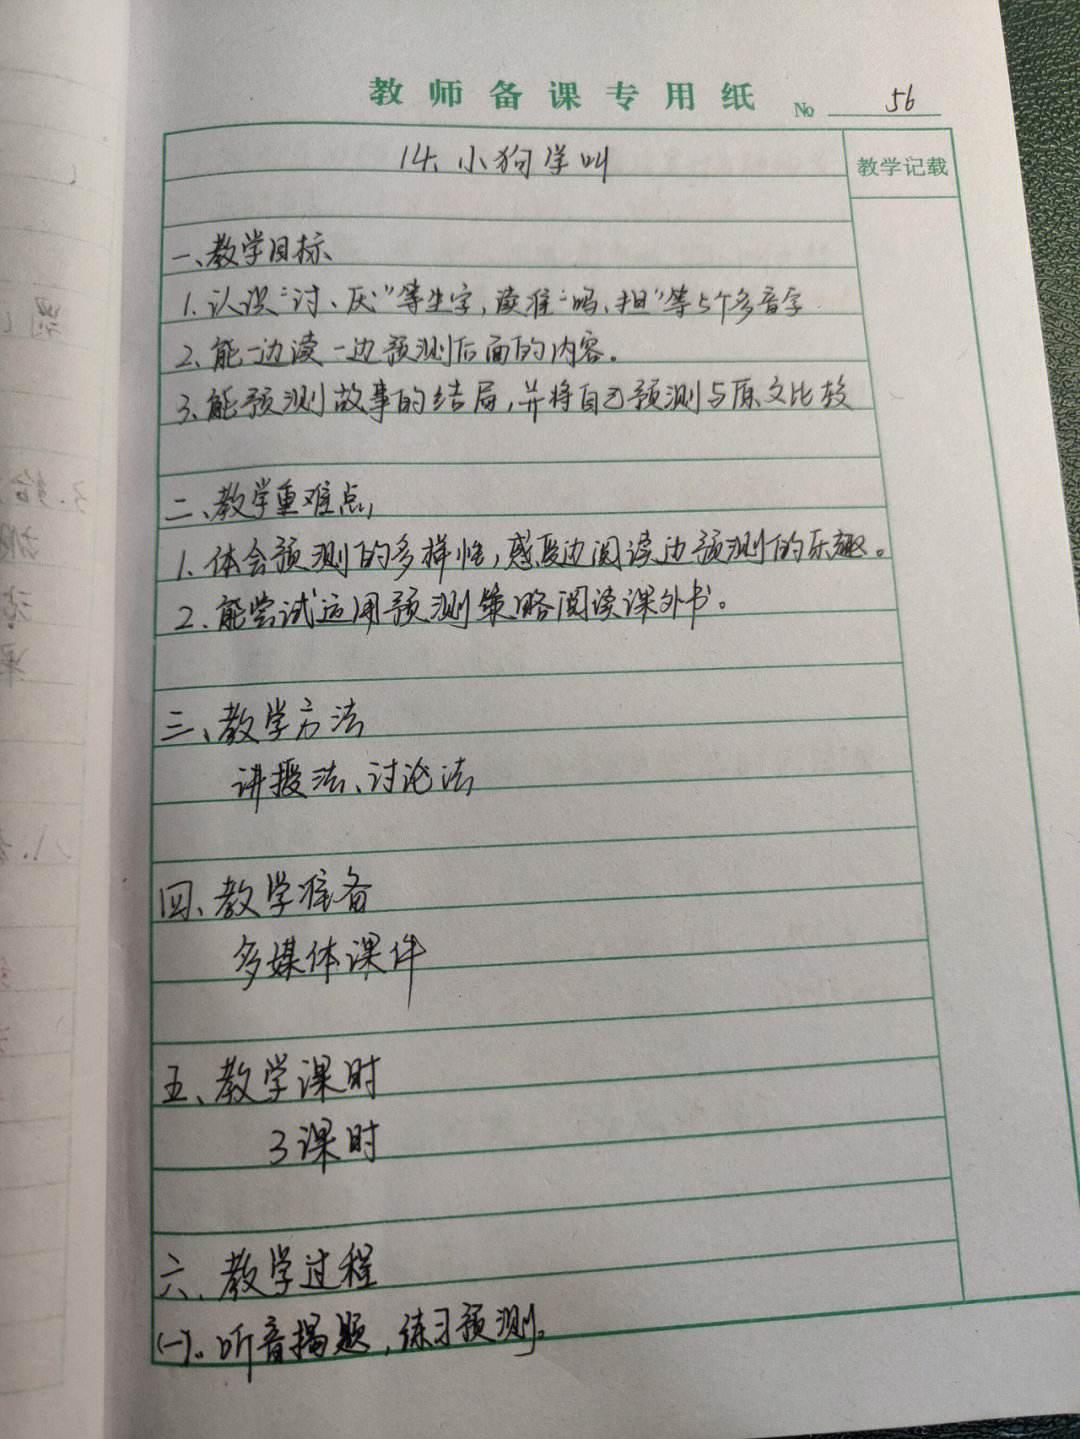 教师备课专用纸 № 56
14、小狗学叫
教学记载
一、教学目标
1. 认识“讨、厌”等生字，读准“吗、担”等5个多音字.
2、能一边读一边预测后面的内容。
3、能预测故事的结局，并将自己预测与原文比较
二、教学重难点
1. 体会预测的多样性，感受边阅读边预测的乐趣。
2. 能尝试运用预测策略阅读课外书。
三、教学方法
讲授法、讨论法
四、教学准备
多媒体课件
五、教学课时
3课时
六、教学过程
(一)。听音揭题，练习预测。